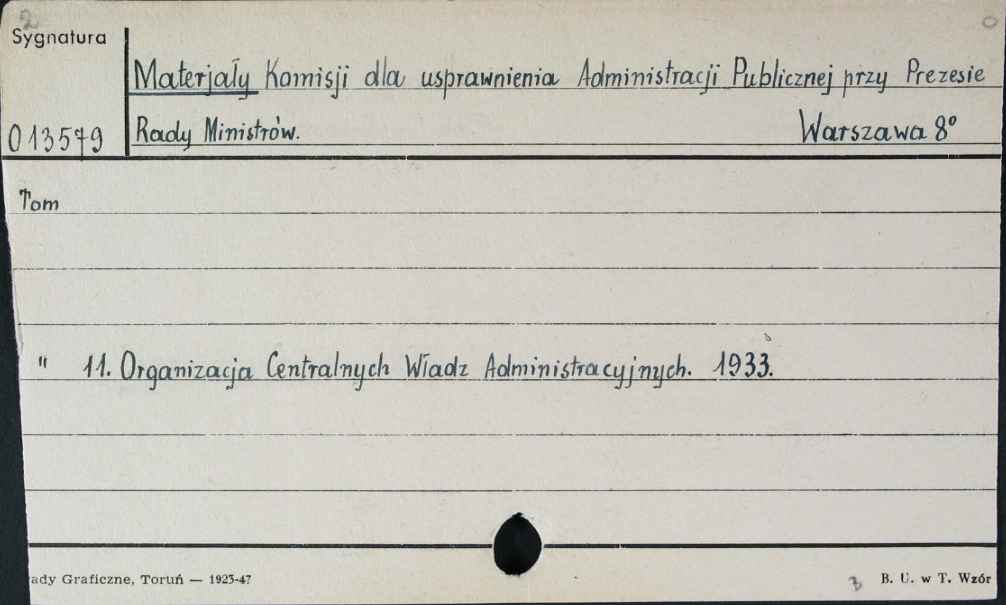 2
Sygnatura
Materjały Komisji dla usprawnienia Administracji Publicznej przy Prezesie
013579 Rady Ministrów. Warszawa 8°
Tom
" 11. Organizacja Centralnych Władz Administracyjnych. 1933.
ady Graficzne, Toruń — 1925-47 B. U. w T. Wzór